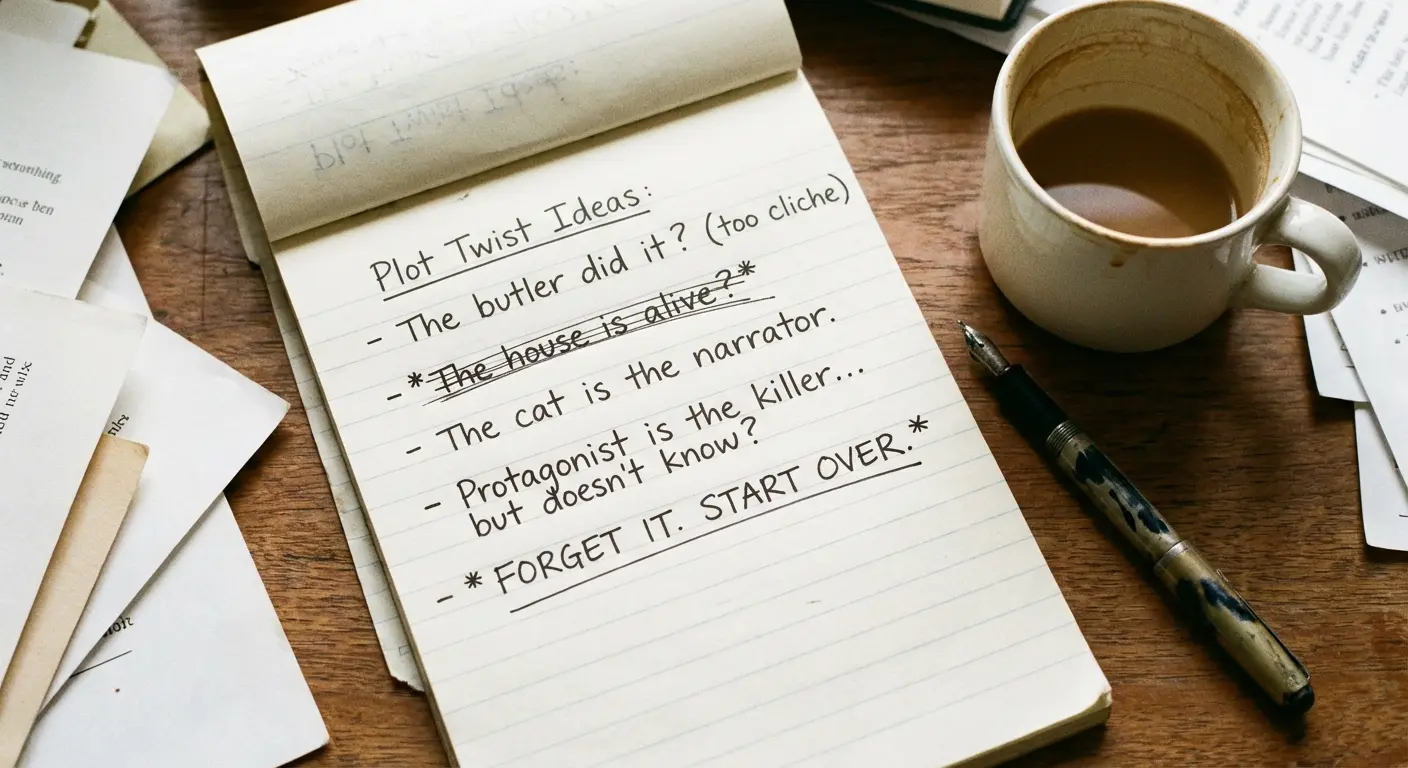 Plot Twist Ideas:
- The butler did it? (too cliche)
- *The house is alive?*
- The cat is the narrator.
- Protagonist is the killer...
but doesn't know?
- *FORGET IT. START OVER.*
and